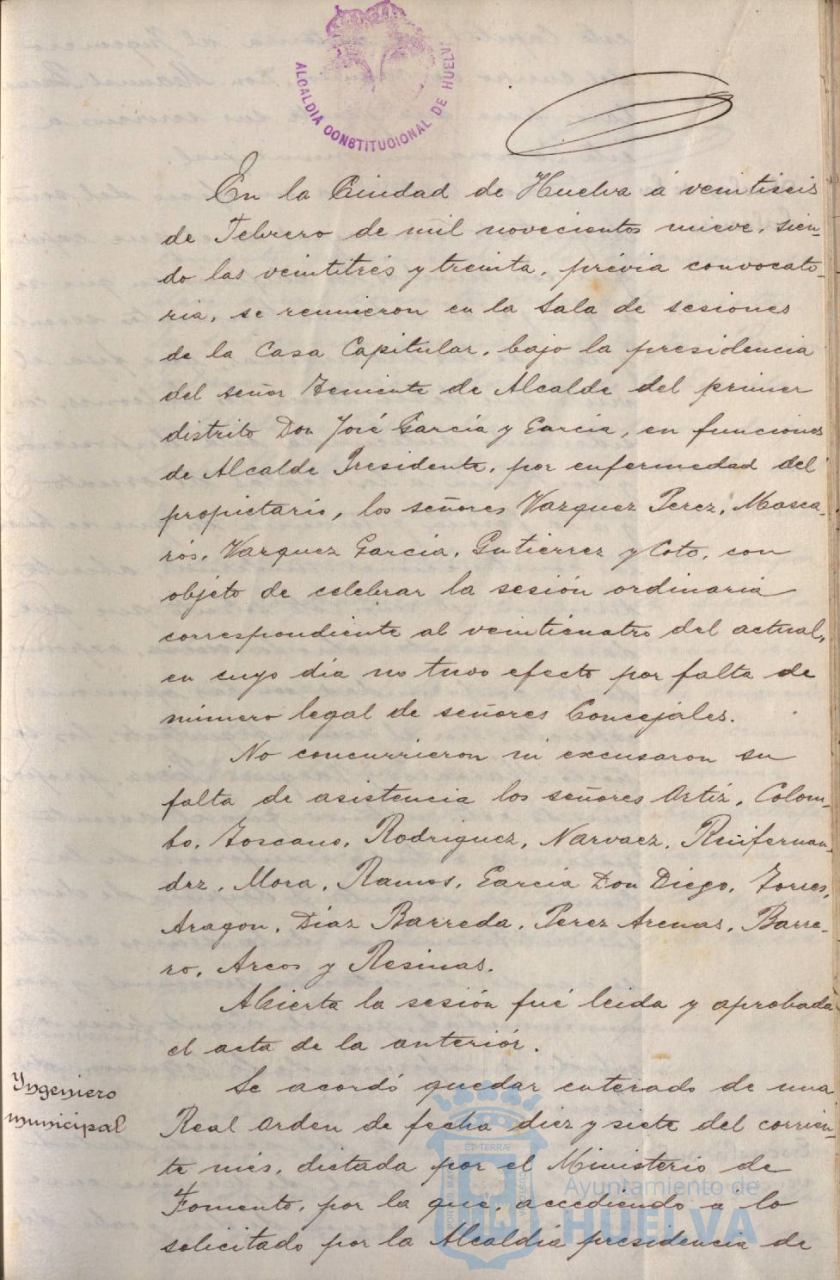 ALCALDIA CONSTITUCIONAL DE HUELVA
En la Ciudad de Huelva á veintiseis
de Febrero de mil novecientos nueve, sien-
do las veintitrés y treinta, prévia convocato-
ria, se reunieron en la Sala de sesiones
de la Casa Capitular, bajo la presidencia
del señor Teniente de Alcalde del primer
distrito Don José García y García, en funciones
de Alcalde Presidente, por enfermedad del
propietario, los señores Vazquez Perez, Masca-
rós, Vazquez García, Gutierrez y Coto, con
objeto de celebrar la sesión ordinaria
correspondiente al veinticuatro del actual,
en cuyo dia no tuvo efecto por falta de
número legal de señores Concejales.
No concurrieron ni excusaron su
falta de asistencia los señores Ortiz, Colom-
bo, Toscano, Rodriguez, Narvaez, Ruifernan-
dez, Mora, Ramos, García Don Diego, Torres,
Aragon, Díaz Barreda, Perez Arenas, Barre-
ro, Arcos y Resinas.
Abierta la sesión fué leida y aprobada
el acta de la anteriór.
Yngeniero
municipal
Se acordó quedar enterado de una
Real Orden de fecha diez y siete del corrien-
te més, dictada por el Ministerio de
Fomento, por la que, accediendo a lo
solicitado por la Alcaldía presidencia de
Ayuntamiento de
HUELVA